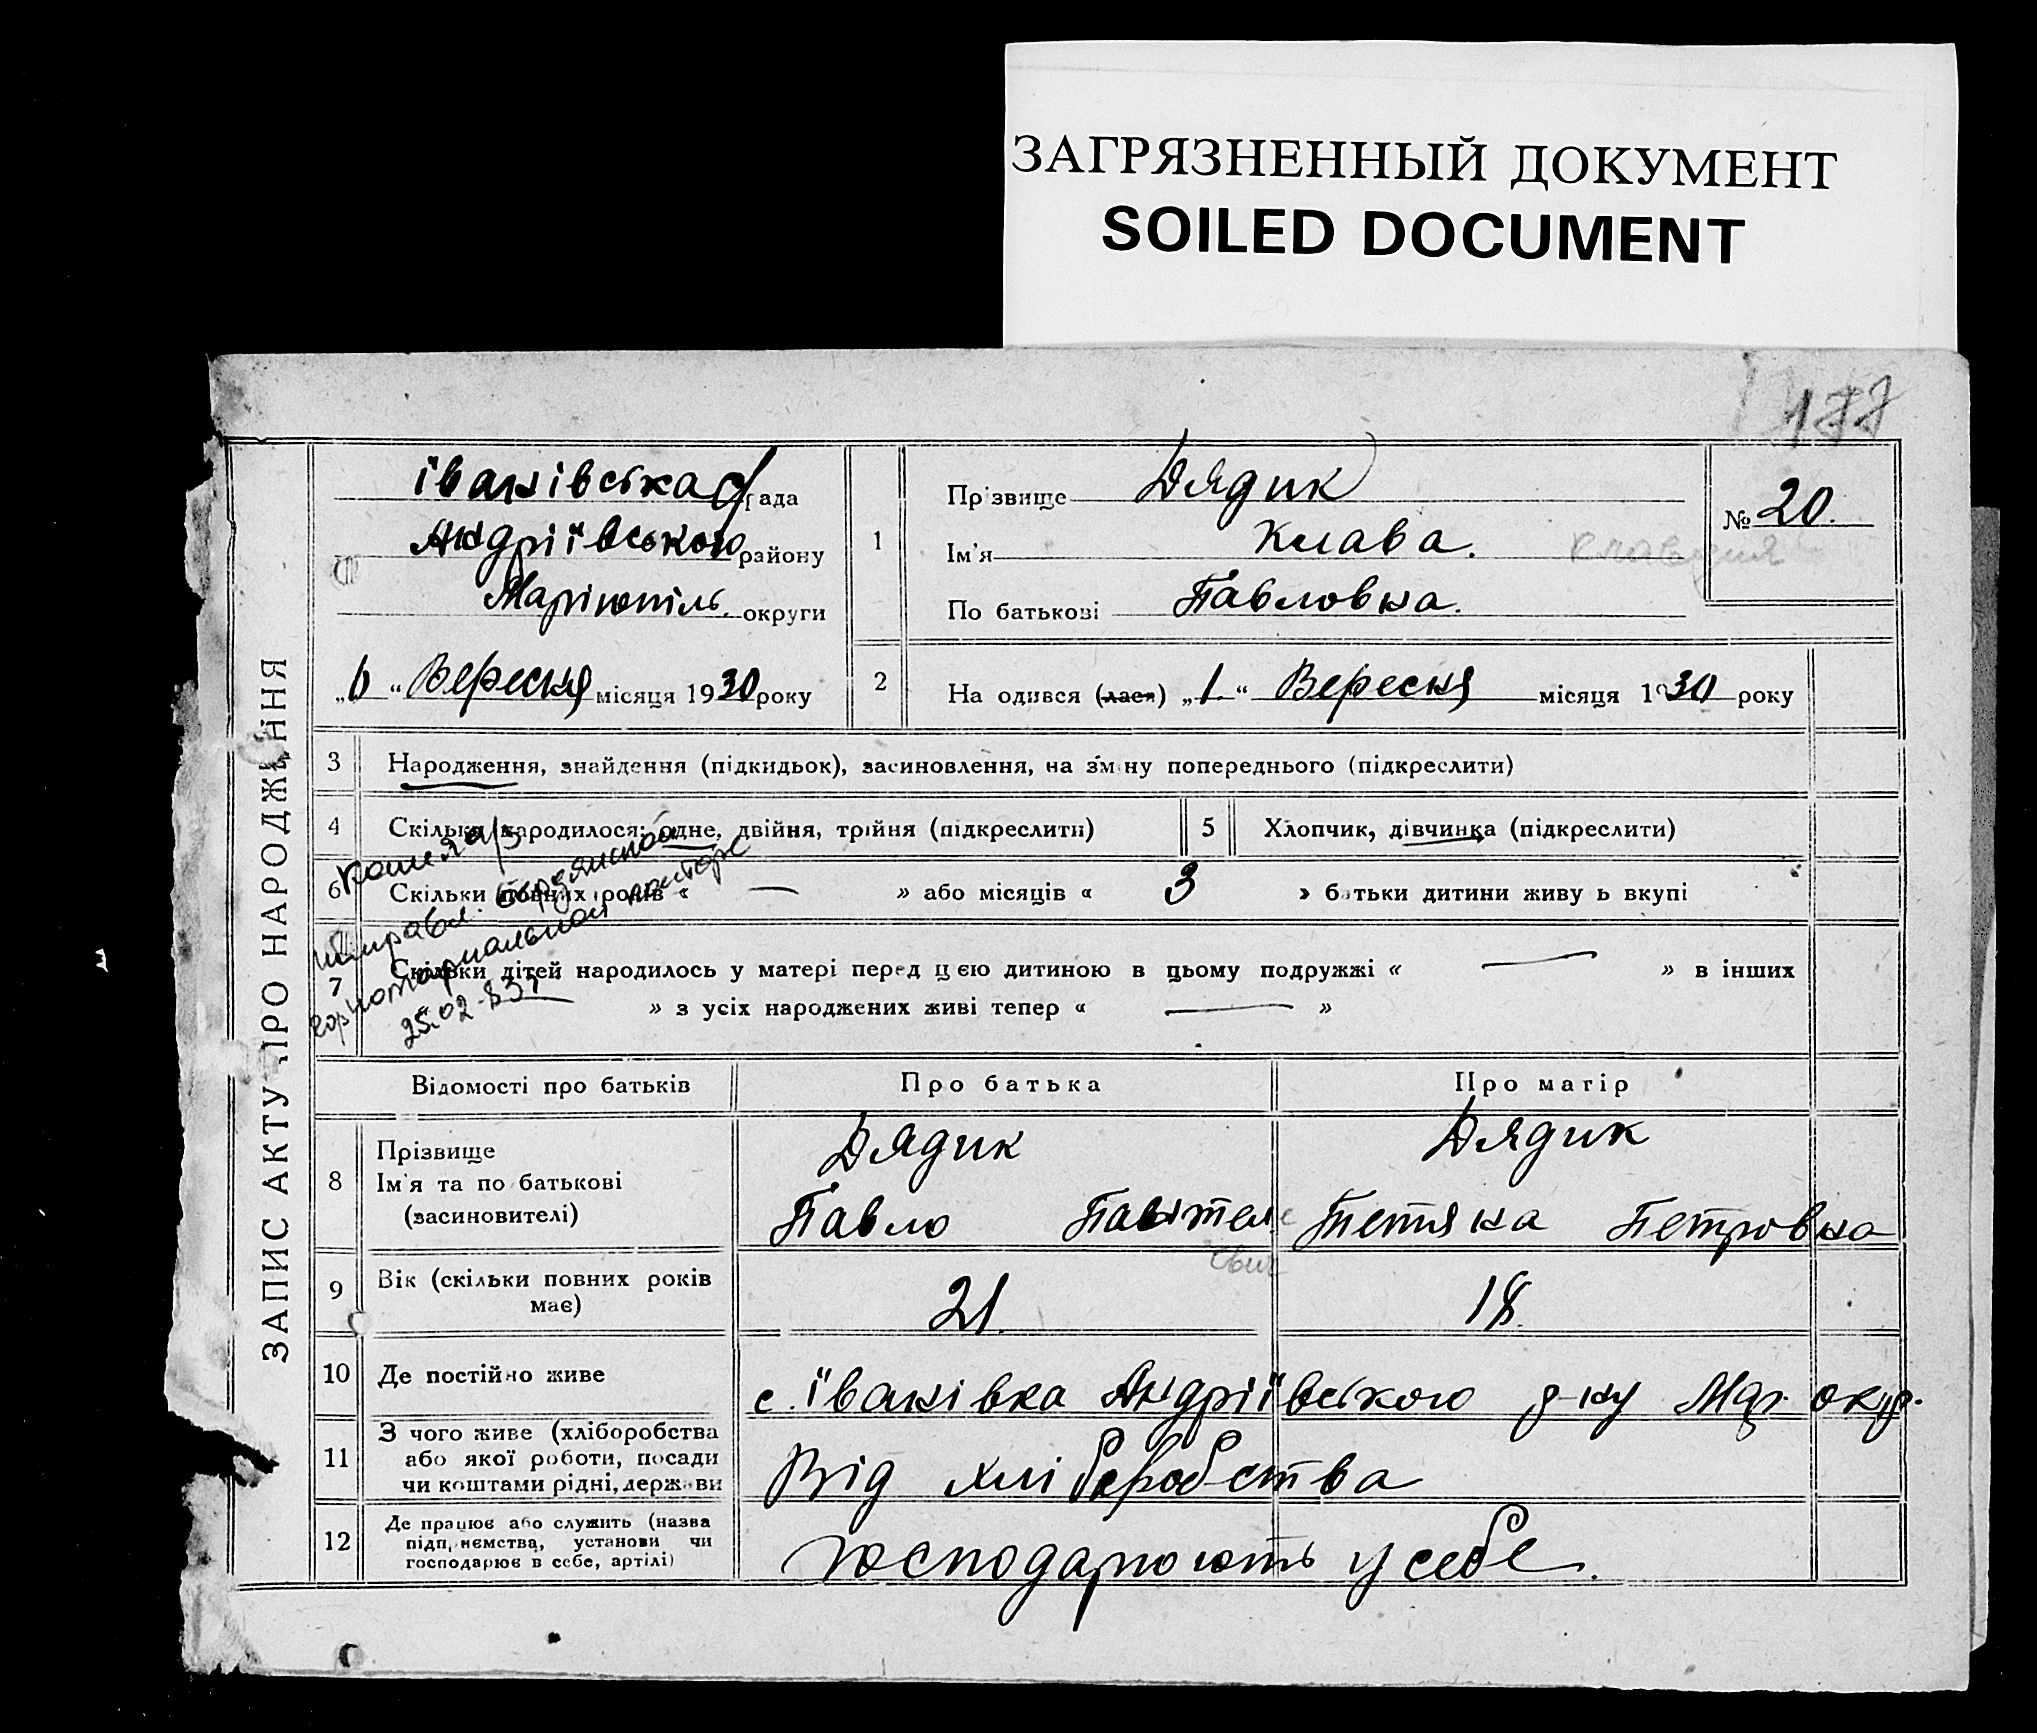 ЗАГРЯЗНЕННЫЙ ДОКУМЕНТ
SOILED DOCUMENT
177
ЗАПИС АКТУ ПРО НАРОДЖЕННЯ
Іванівська с/рада
Андріївського району
Маріюпіль. округи
„6“ Вересня місяця 1930 року
1
Прізвище Дядик
Ім'я Клава. Клавдия
По батькові Павловна.
№ 20.
2
На одився (лася) „1.“ Вересня місяця 1930 року
3 Народження, знайдення (підкидьок), засиновлення, на зміну попереднього (підкреслити)
4 Скільки народилося: одне, двійня, трійня (підкреслити) 5 Хлопчик, дівчинка (підкреслити)
6 Скільки повних років « — » або місяців « 3 » батьки дитини живуть вкупі
7 Скільки дітей народилось у матері перед цією дитиною в цьому подружжі « — » в інших
» з усіх народжених живі тепер « — »
Бердянской
нотариальной конторе
25.02.
Відомості про батьків Про батька Про матір
8 Прізвище
Ім'я та по батькові
(засиновителі)
Дядик Дядик
Павло Тетяна Петровна
9 Вік (скільки повних років
має)
21. 18.
10 Де постійно живе с. Іванівка Андріївського р-ну Мар. окр.
11 З чого живе (хліборобства
або якої роботи, посади
чи коштами рідні, держави
Від хліборобства
12 Де працює або служить (назва
підприємства, установи чи
господарює в себе, артілі)
господарюють у себе.